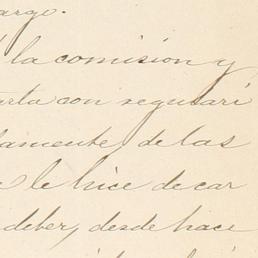 argo.
la comision y
arla con regulari
damente, de las
le hice de car
deber, desde hace